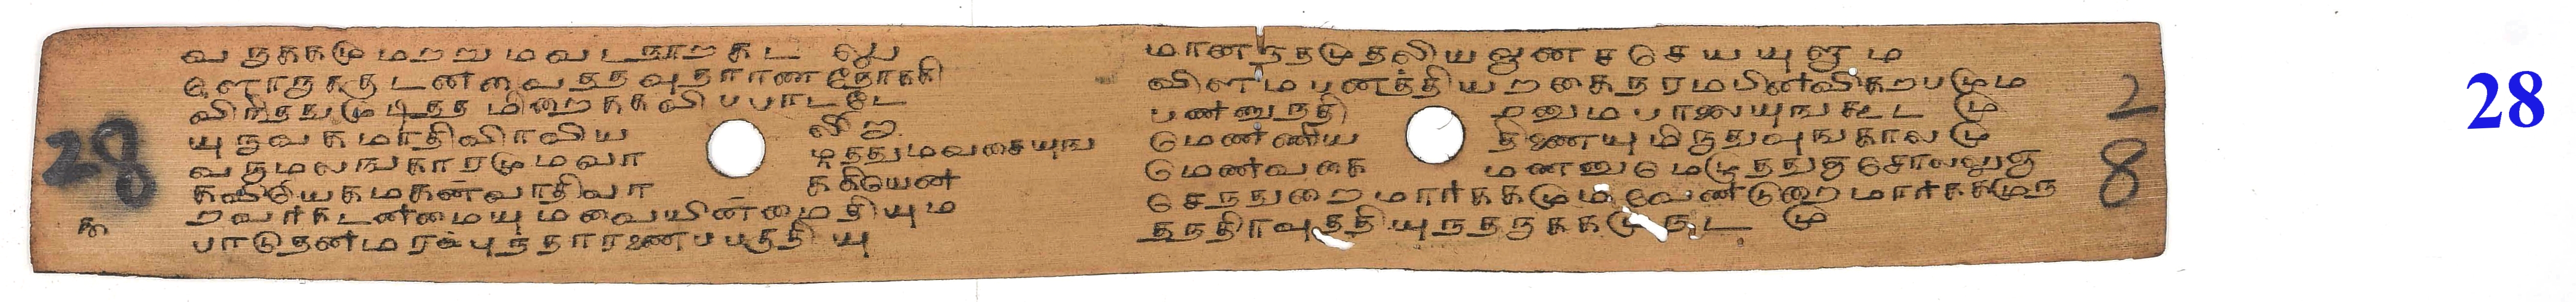 வருககமு மறறு மவடநூறகட லுட
ளொருஙகுடன்வைததவுதாரணநோககி
விரிததுமுடிதத மிறைககவிப பாடடே
யுருவகமாதிவிராவிய லீறு
வருமலஙகாரமுமவா ழததுமவசையுங
கவியெகமகன்வாதிவா ககியென்
றவர்கடன்மையு மவையின்மைதியும
பாடுதன்மரபுந தாரணைபபகுதி யு
மானநதமுதலிய ஊனசசெய யுளும
விளமபனத்தியறகைநரமபின்விகறபமும
பண்ணுநதி றனுமபாலையுஙகூட மு
மெண்ணிய திணையுமிருதுவுஙகாலமு
மெண்வகை மனனுமெழுததுஞசொலலுஞ
செநதுறைமார்ககமும வேண்டுறைமார்ககமுந
தநதிரவுததியுநதருககமு நட மு
28
28
28